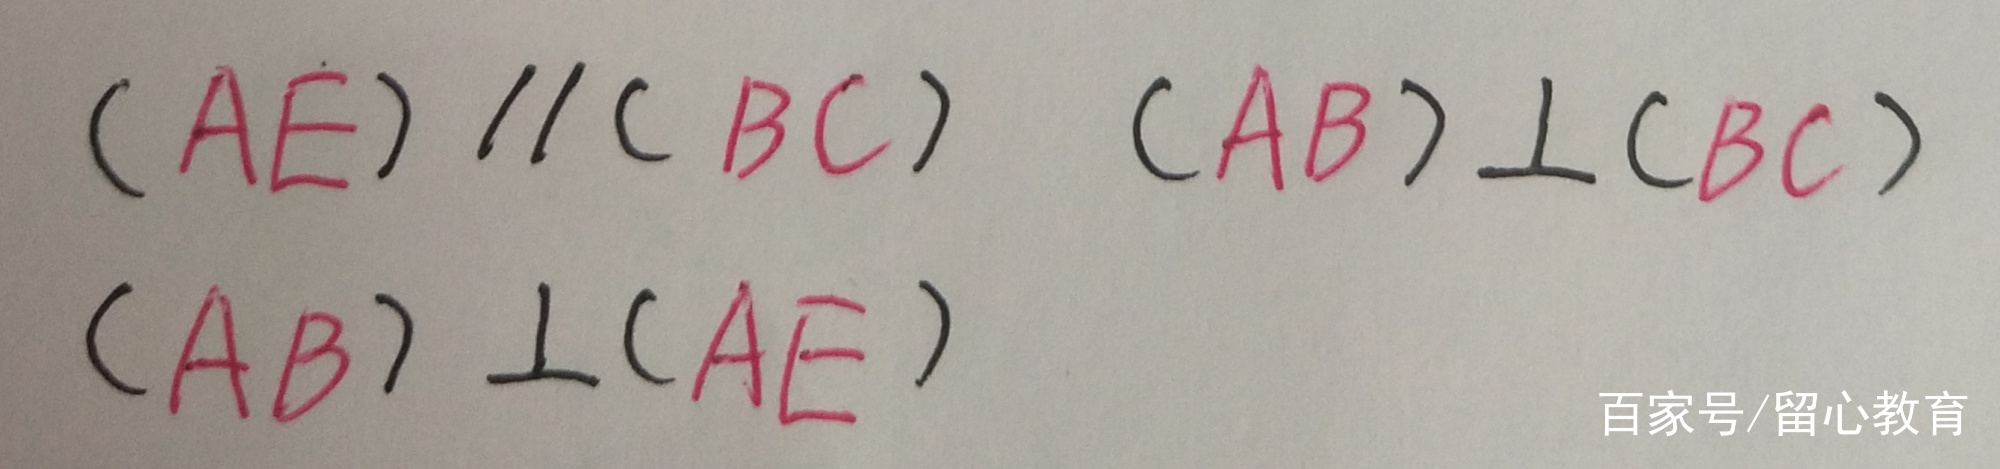 (AE)//(BC) (AB)⊥(BC)
(AB)⊥(AE)
百家号/留心教育